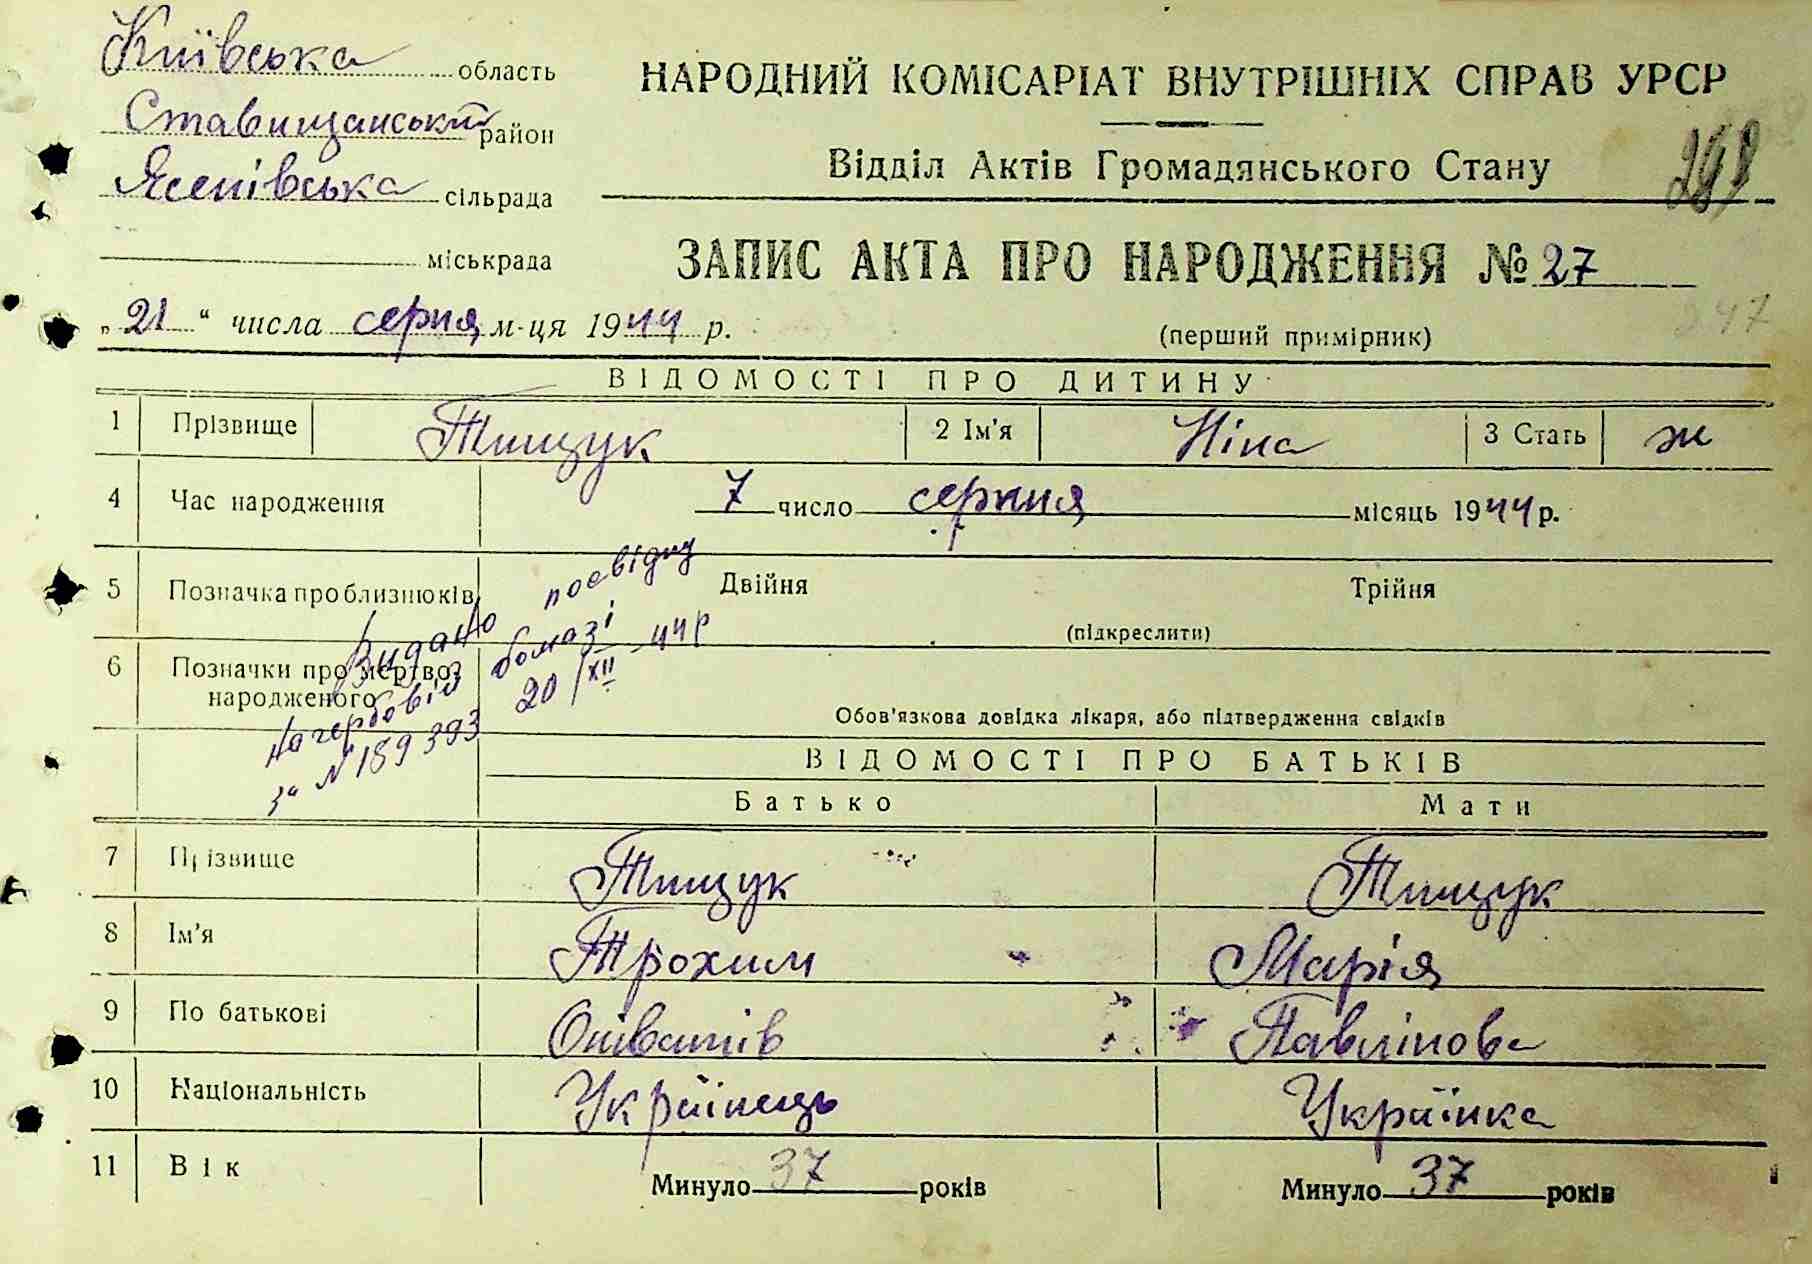 Київська область
Ставищанський район
Ясенівська сільрада
міськрада
НАРОДНИЙ КОМІСАРІАТ ВНУТРІШНІХ СПРАВ УРСР
Відділ Актів Громадянського Стану
ЗАПИС АКТА ПРО НАРОДЖЕННЯ № 27
„21“ числа серпня м-ця 1944 р.
(перший примірник)
247
ВІДОМОСТІ ПРО ДИТИНУ
1 Прізвище Тищук 2 Ім'я Ніна 3 Стать ж
4 Час народження 7 число серпня місяць 1944 р.
5 Позначка про близнюків Двійня Трійня
(підкреслити)
6 Позначки про мертвонародженого
Обов'язкова довідка лікаря, або підтвердження свідків
Видано посвідку
на гербовій бомазі
за № 189393 20/XII 44р
ВІДОМОСТІ ПРО БАТЬКІВ
Батько Мати
7 Прізвище Тищук Тищук
8 Ім'я Трохим Марія
9 По батькові Павлінова
10 Національність Українець Українка
11 Вік Минуло 37 років Минуло 37 років